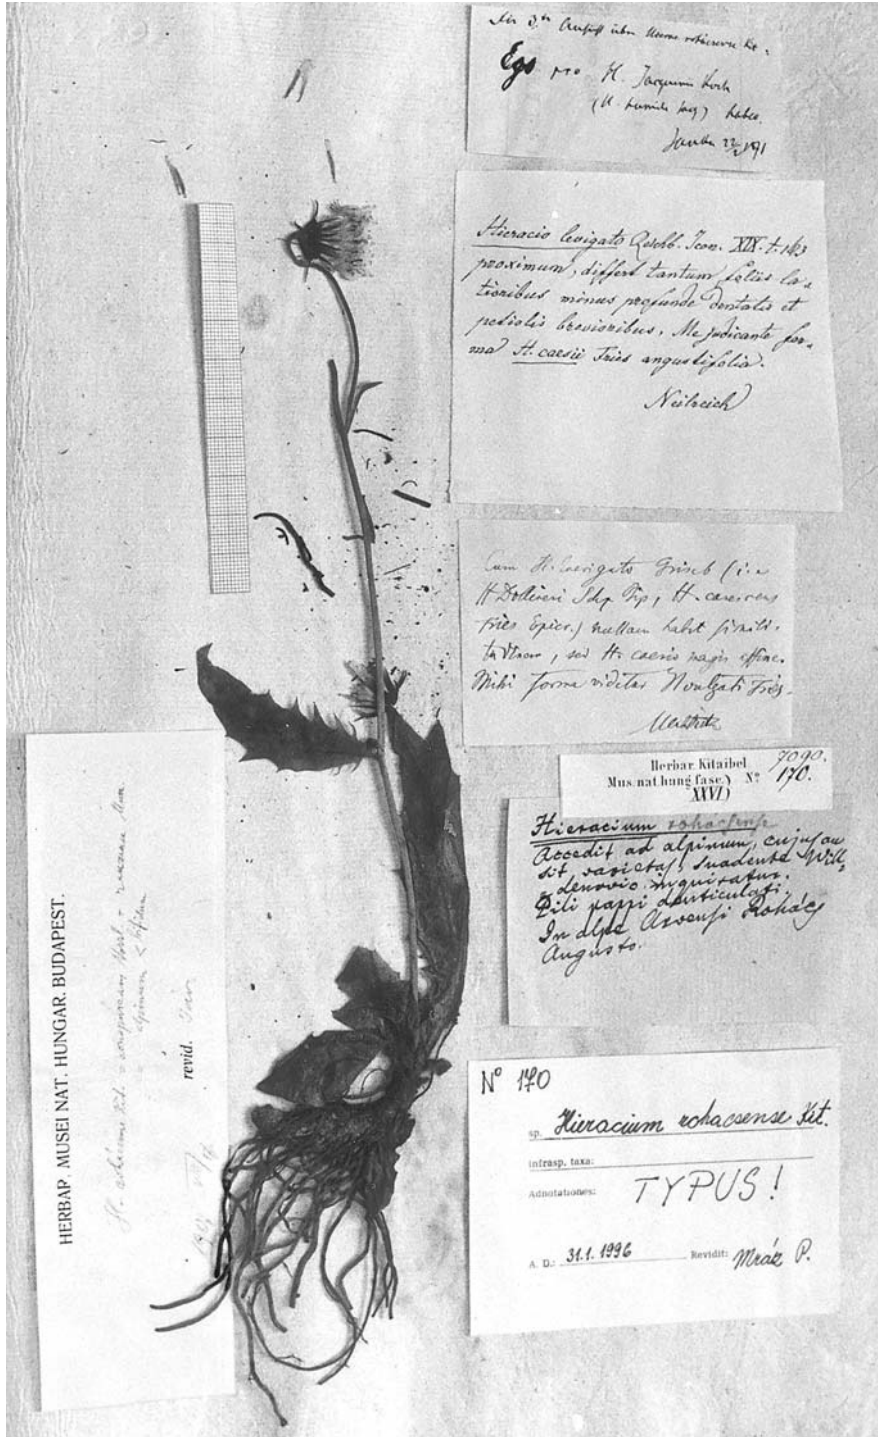 Ego pro H. Jacquini Koch
habeo.
Janka
Hieracio levigato Reichb. Icon. XIX. t. 163
proximum, differt tantum foliis la-
tioribus minus profunde dentatis et
petiolis brevioribus. Me judicante for-
ma H. caesii Fries angustifolia.
Neilreich
Cum H. laevigato Griseb (i. e
H Dollineri Schz Bip, H. canescens
Fries Epicr.) nullam habet simili-
tudinem, sed H. caesio magis affine.
Mihi forma videtur H vulgati Fries.
Uechtritz
Herbar. Kitaibel 7090.
Mus. nat hung fasc. XXVI) Nº 170.
Hieracium rohácsense
Accedit ad alpinum, cujus an
sit varietas, suadente Will-
denovio inquiratur.
Pili pappi denticulati.
In alpe Arvensi Rohács
Augusto.
Nº 170
sp. Hieracium rohacsense Kit.
infrasp. taxa:
Adnotationes: TYPUS!
A. D.: 31.1. 1996 Revidit: Mráz P.
HERBAR. MUSEI NAT. HUNGAR. BUDAPEST.
revid.